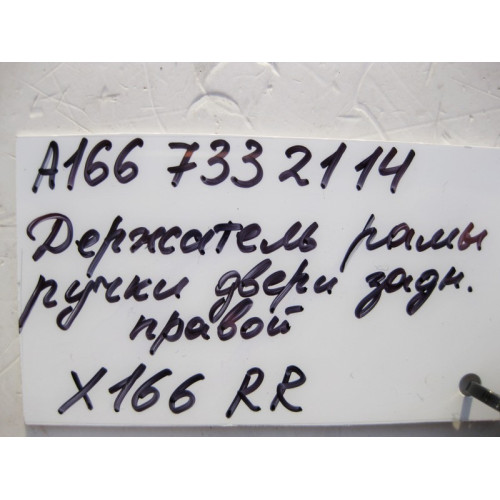 A166 733 21 14
Держатель рамы
ручки двери задн.
правой
X166 RR